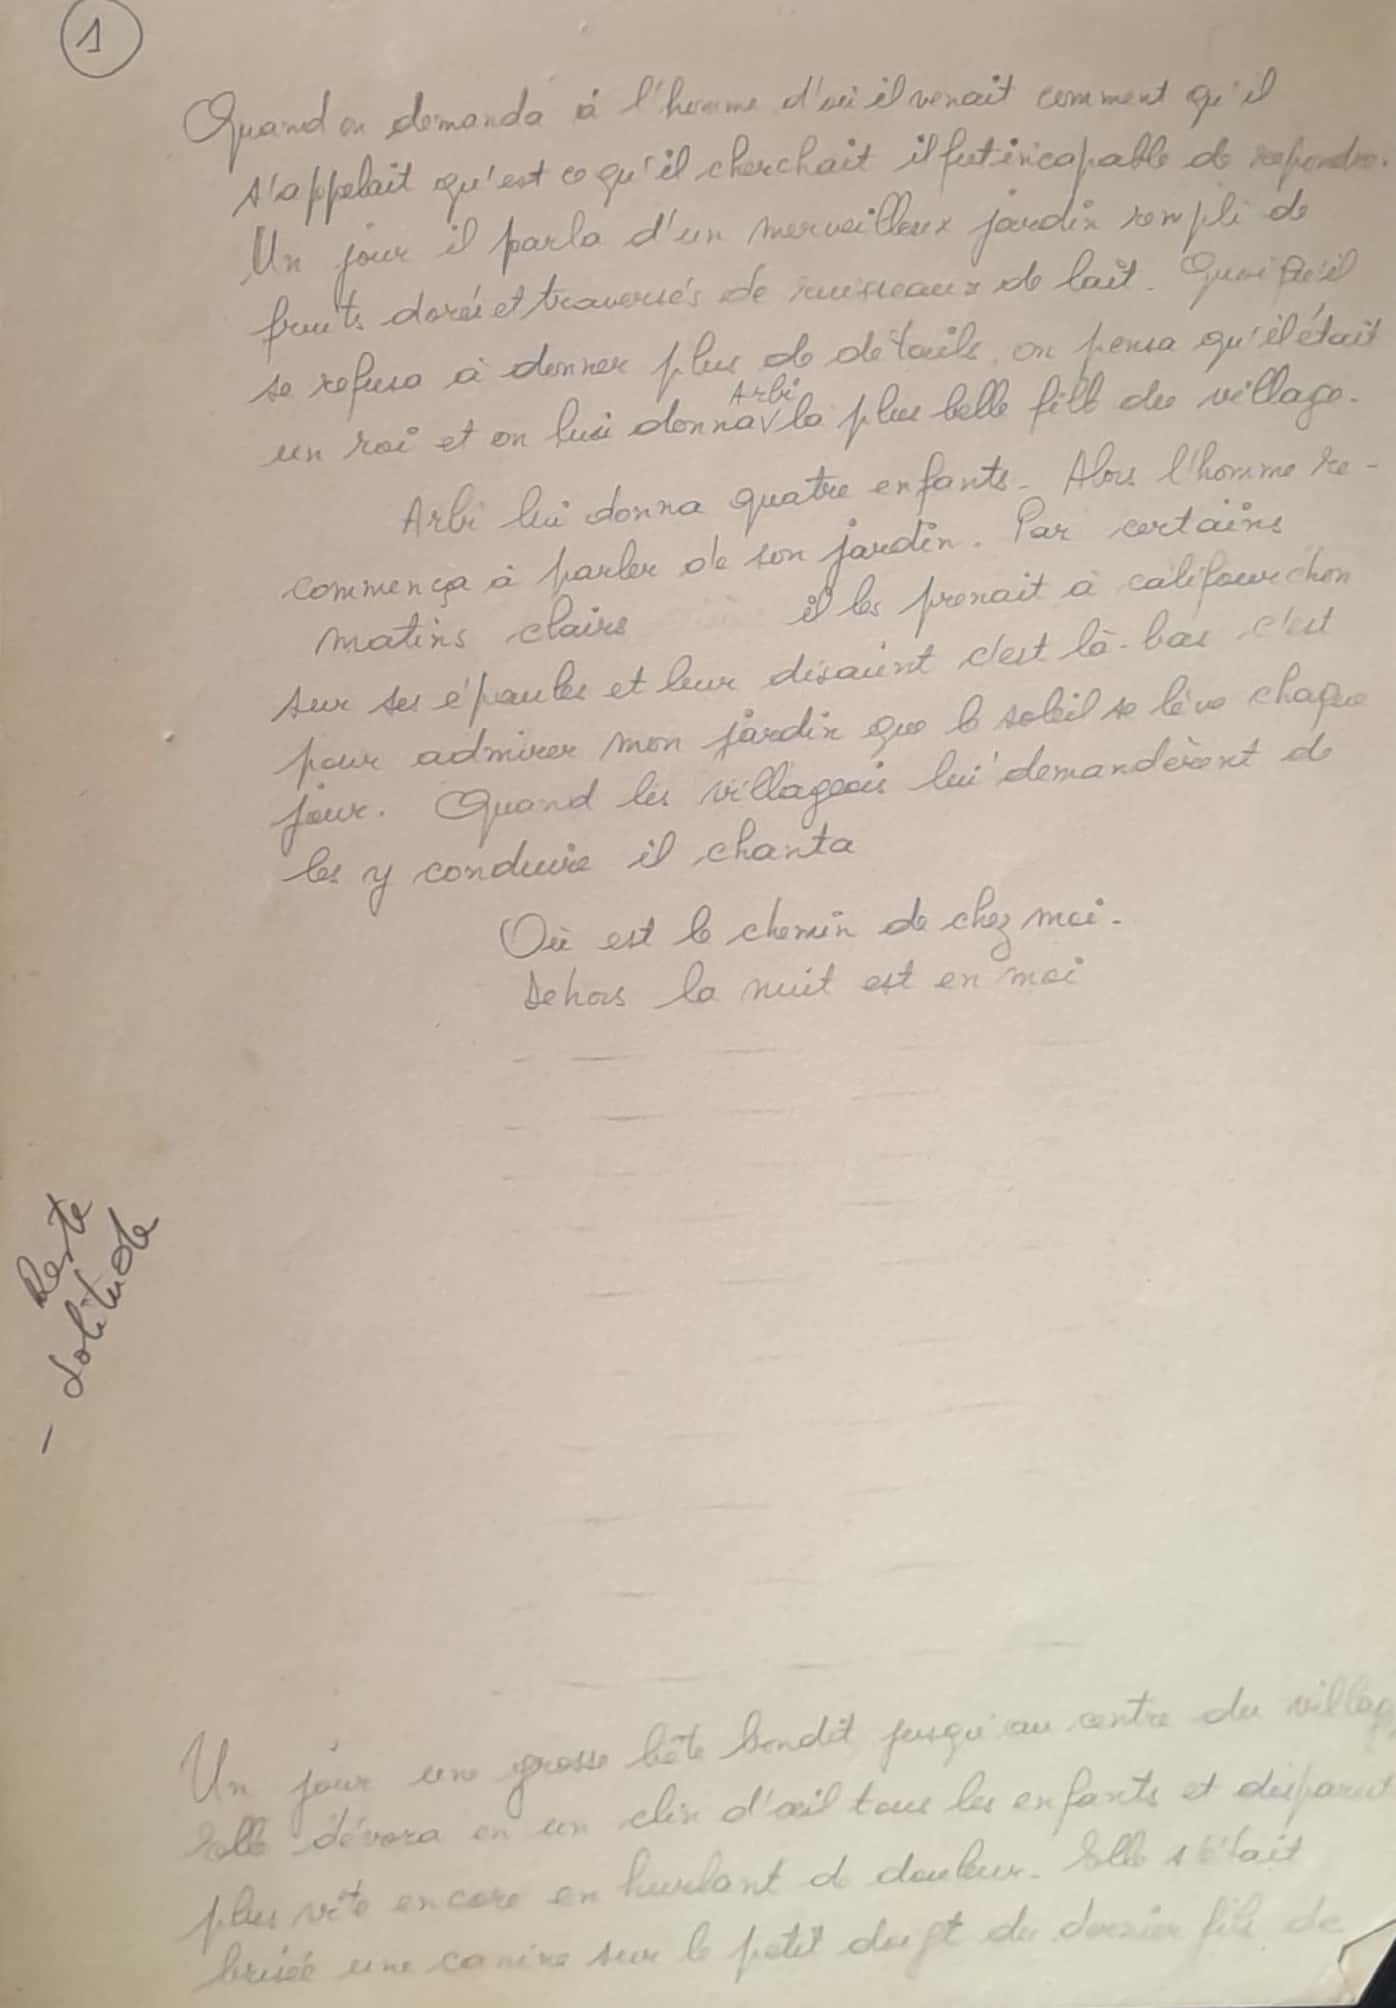 1
Quand on demanda à l'homme d'où il venait comment qu'il
s'appelait qu'est ce qu'il cherchait il fut incapable de repondre.
Un jour il parla d'un merveilleux jardin rempli de
fruits dorés et traversés de ruisseaux de lait. Quoi qu'il
se refusa à donner plus de détails, on pensa qu'il était
Arbi
un roi et on lui donna la plus belle fille du village.
Arbi lui donna quatre enfants. Alors l'homme re-
commença à parler de son jardin. Par certains
matins clairs il les prenait à califourchon
sur ses épaules et leur disaient c'est là-bas c'est
pour admirer mon jardin que le soleil se lève chaque
jour. Quand les villageois lui demandèrent de
les y conduire il chanta
Où est le chemin de chez moi.
Dehors la nuit est en moi
Reste
- solitude
Un jour une grosse bête bondit jusqu'au centre du villag
Elle dévora en un clin d'œil tous les enfants et disparut
plus vite encore en hurlant de douleur. Elle s'était
brisée une canine sur le petit doigt du dernier fils de